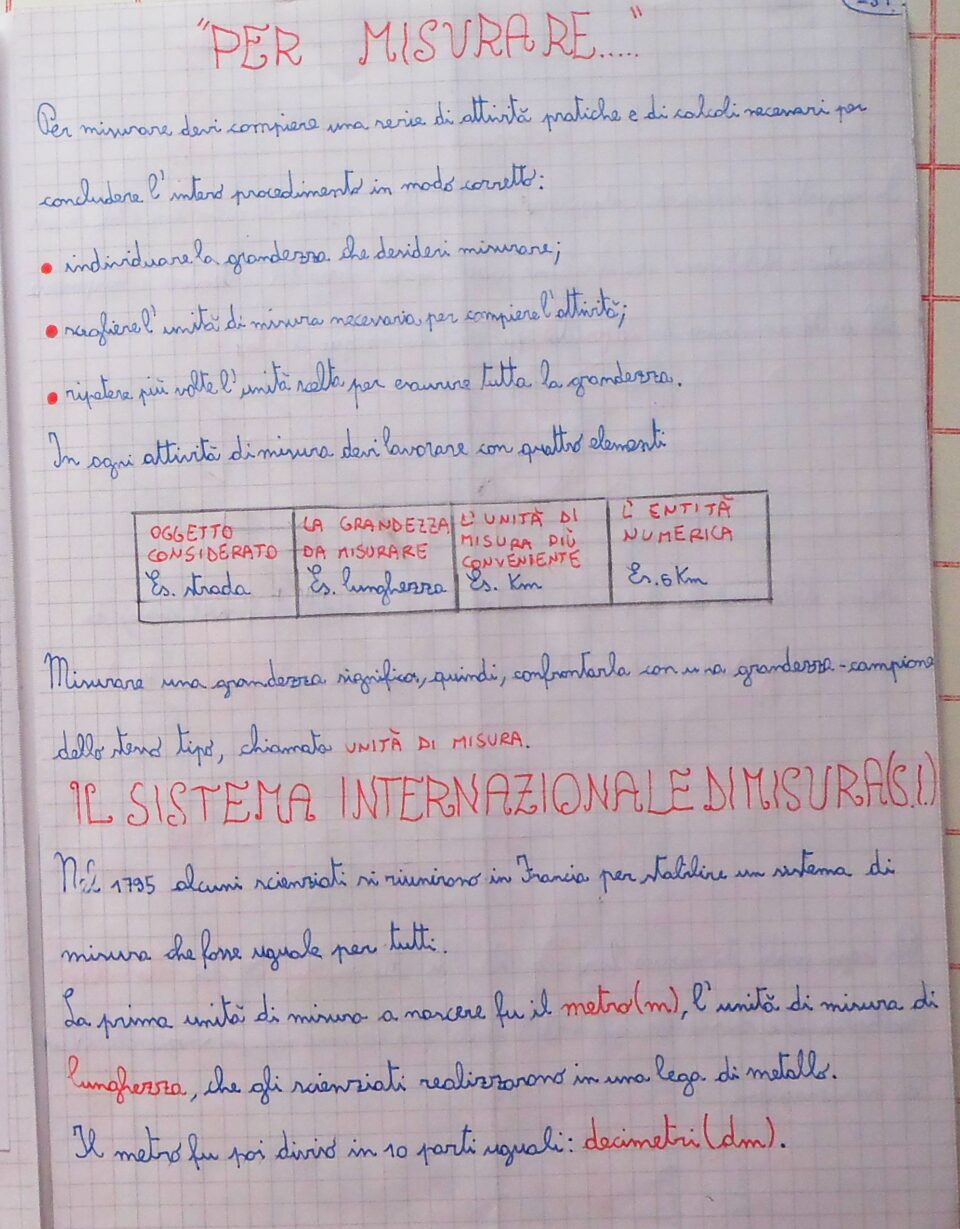 "PER MISURARE....."
Per misurare devi compiere una serie di attività pratiche e di calcoli necessari per
concludere l'intero procedimento in modo corretto:
• individuare la grandezza che desideri misurare;
• scegliere l'unità di misura necessaria per compiere l'attività;
• ripetere più volte l'unità scelta per esaurire tutta la grandezza.
In ogni attività di misura devi lavorare con quattro elementi
OGGETTO CONSIDERATO Es. strada
LA GRANDEZZA DA MISURARE Es. lunghezza
L'UNITÀ DI MISURA PIÙ CONVENIENTE Es. Km
L'ENTITÀ NUMERICA Es. 6 Km
Misurare una grandezza significa, quindi, confrontarla con una grandezza-campione
dello stesso tipo, chiamata UNITÀ DI MISURA.
IL SISTEMA INTERNAZIONALE DI MISURA (S.I.)
Nel 1795 alcuni scienziati si riunirono in Francia per stabilire un sistema di
misura che fosse uguale per tutti.
La prima unità di misura a nascere fu il metro (m), l'unità di misura di
lunghezza, che gli scienziati realizzarono in una lega di metallo.
Il metro fu poi diviso in 10 parti uguali: decimetri (dm).